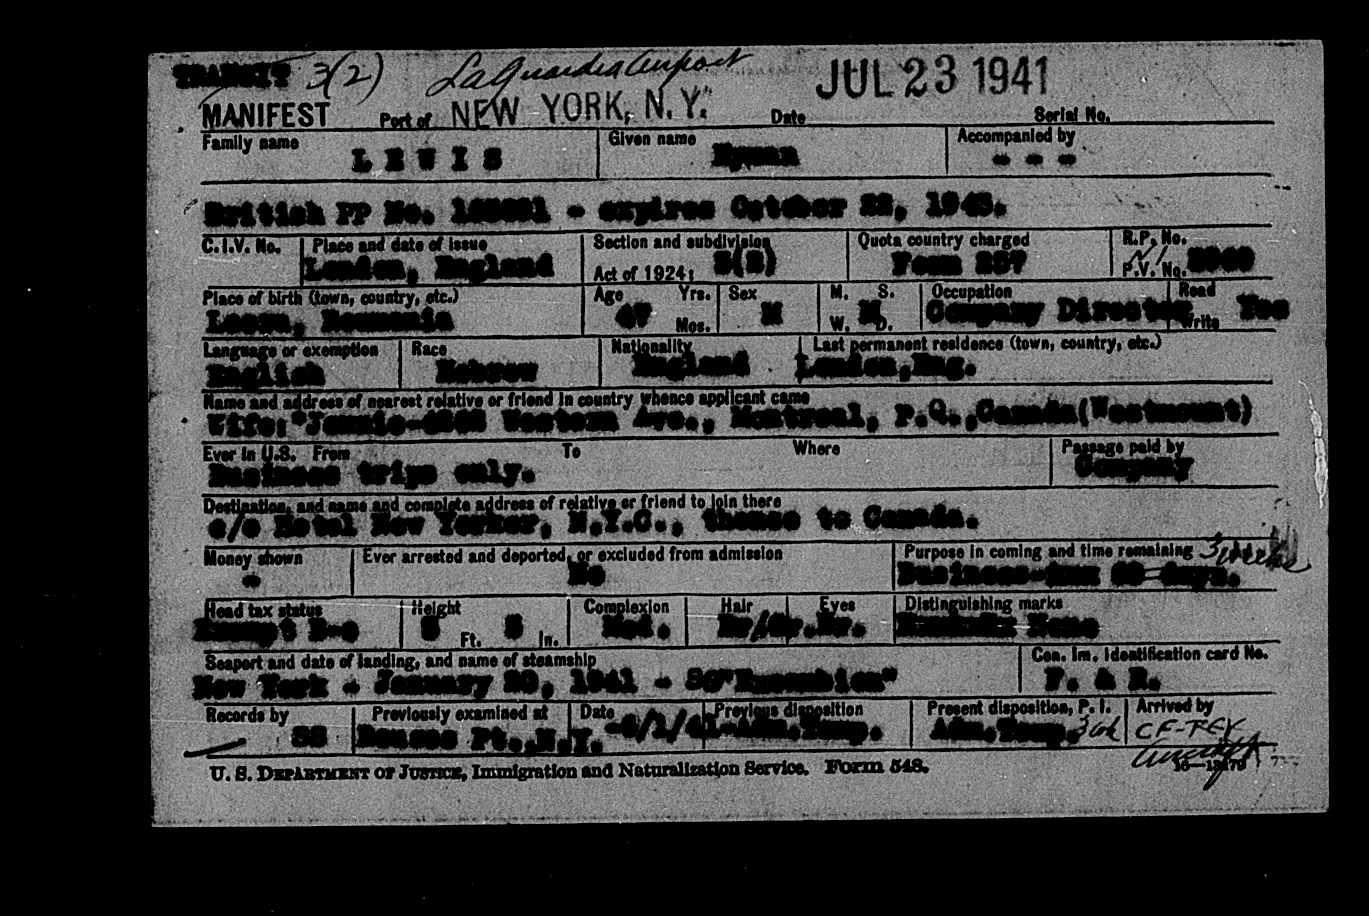 TRANSIT 3(2) LaGuardia Airport JUL 23 1941
MANIFEST Port of NEW YORK, N.Y. Date Serial No.
Family name Given name Accompanied by
L E W I S Hyman - - -
British PP No. - expires October 22, 1943.
C.I.V. No. Place and date of issue Section and subdivision Quota country charged R.P. No.
London, England Act of 1924: 3(2) Form 257 P.V. No.
Place of birth (town, country, etc.) Age Yrs. Sex M. S. Occupation Read
Roumania 47 Mos. M W. M D. Company Director Write Yes
Language or exemption Race Nationality Last permanent residence (town, country, etc.)
English Hebrew England London, Eng.
Name and address of nearest relative or friend in country whence applicant came
Wife: Jennie- Western Ave., Montreal, P.Q., Canada (Westmount)
Ever in U.S. From To Where Passage paid by
Business trips only. Company
Destination, and name and complete address of relative or friend to join there
c/o Hotel New Yorker, N.Y.C., thence to Canada.
Money shown Ever arrested and deported, or excluded from admission Purpose in coming and time remaining 3 weeks
- No Business- days.
Head tax status Height Complexion Hair Eyes Distinguishing marks
Exempt 5 Ft. 5 In. Med. Br/Gr. Br. None
Seaport and date of landing, and name of steamship Can. Im. Identification card No.
New York - January 20, 1941 - SS" " F. & R.
Records by Previously examined at Date Previous disposition Present disposition, P. I. Arrived by
SS Rouses Pt., N.Y. -6/1/41-Adm.Temp. Adm.Temp. CF-TEX
U. S. DEPARTMENT OF JUSTICE, Immigration and Naturalization Service. Form 548.